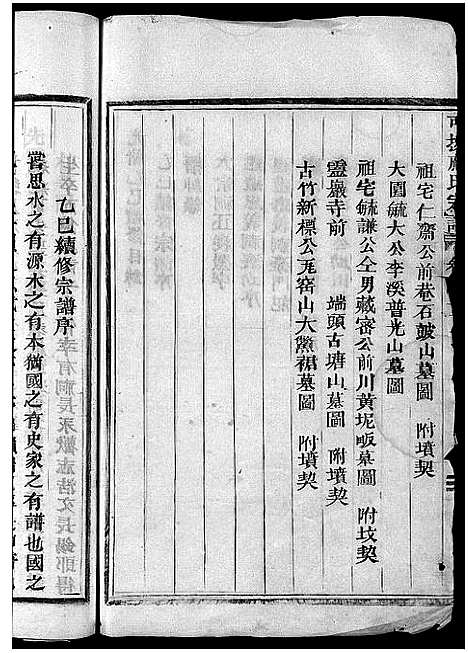 祖宅仁齋公前巷石皷山墓圖　附墳契
大園毓大公李溪普光山墓圖
祖宅毓謙公仝男藏審公前川黃坭畈墓圖　附坟契
靈巖寺前　端頭古塘山墓圖　附墳契
古竹新標公瓦窑山大黨裾墓圖　附墳契
乙巳續修宗譜序
嘗思水之有源木之有本猶國之有史家之有譜也國之